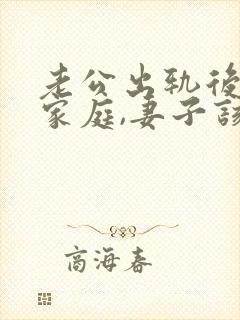 老公出轨後
家庭,妻子該
商海春